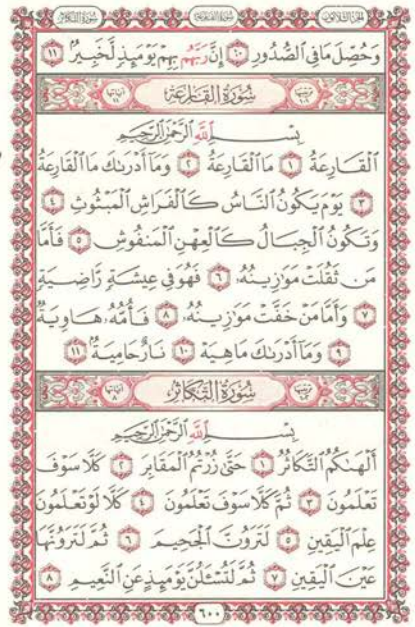 الجزء الثلاثون سورة القارعة سورة التكاثر
وَحُصِّلَ مَا فِي ٱلصُّدُورِ ١٠ إِنَّ رَبَّهُم بِهِمْ يَوْمَئِذٍ لَّخَبِيرٌۢ ١١
سُورَةُ القَارِعَة
بِسْمِ ٱللَّهِ ٱلرَّحْمَٰنِ ٱلرَّحِيمِ
ٱلْقَارِعَةُ ١ مَا ٱلْقَارِعَةُ ٢ وَمَآ أَدْرَىٰكَ مَا ٱلْقَارِعَةُ
٣ يَوْمَ يَكُونُ ٱلنَّاسُ كَٱلْفَرَاشِ ٱلْمَبْثُوثِ ٤
وَتَكُونُ ٱلْجِبَالُ كَٱلْعِهْنِ ٱلْمَنفُوشِ ٥ فَأَمَّا
مَن ثَقُلَتْ مَوَٰزِينُهُۥ ٦ فَهُوَ فِي عِيشَةٍ رَّاضِيَةٍ
٧ وَأَمَّا مَنْ خَفَّتْ مَوَٰزِينُهُۥ ٨ فَأُمُّهُۥ هَاوِيَةٌ
٩ وَمَآ أَدْرَىٰكَ مَا هِيَهْ ١٠ نَارٌ حَامِيَةٌۢ ١١
سُورَةُ التَّكَاثُر
بِسْمِ ٱللَّهِ ٱلرَّحْمَٰنِ ٱلرَّحِيمِ
أَلْهَىٰكُمُ ٱلتَّكَاثُرُ ١ حَتَّىٰ زُرْتُمُ ٱلْمَقَابِرَ ٢ كَلَّا سَوْفَ
تَعْلَمُونَ ٣ ثُمَّ كَلَّا سَوْفَ تَعْلَمُونَ ٤ كَلَّا لَوْ تَعْلَمُونَ
عِلْمَ ٱلْيَقِينِ ٥ لَتَرَوُنَّ ٱلْجَحِيمَ ٦ ثُمَّ لَتَرَوُنَّهَا
عَيْنَ ٱلْيَقِينِ ٧ ثُمَّ لَتُسْـَٔلُنَّ يَوْمَئِذٍ عَنِ ٱلنَّعِيمِ ٨
٦٠٠